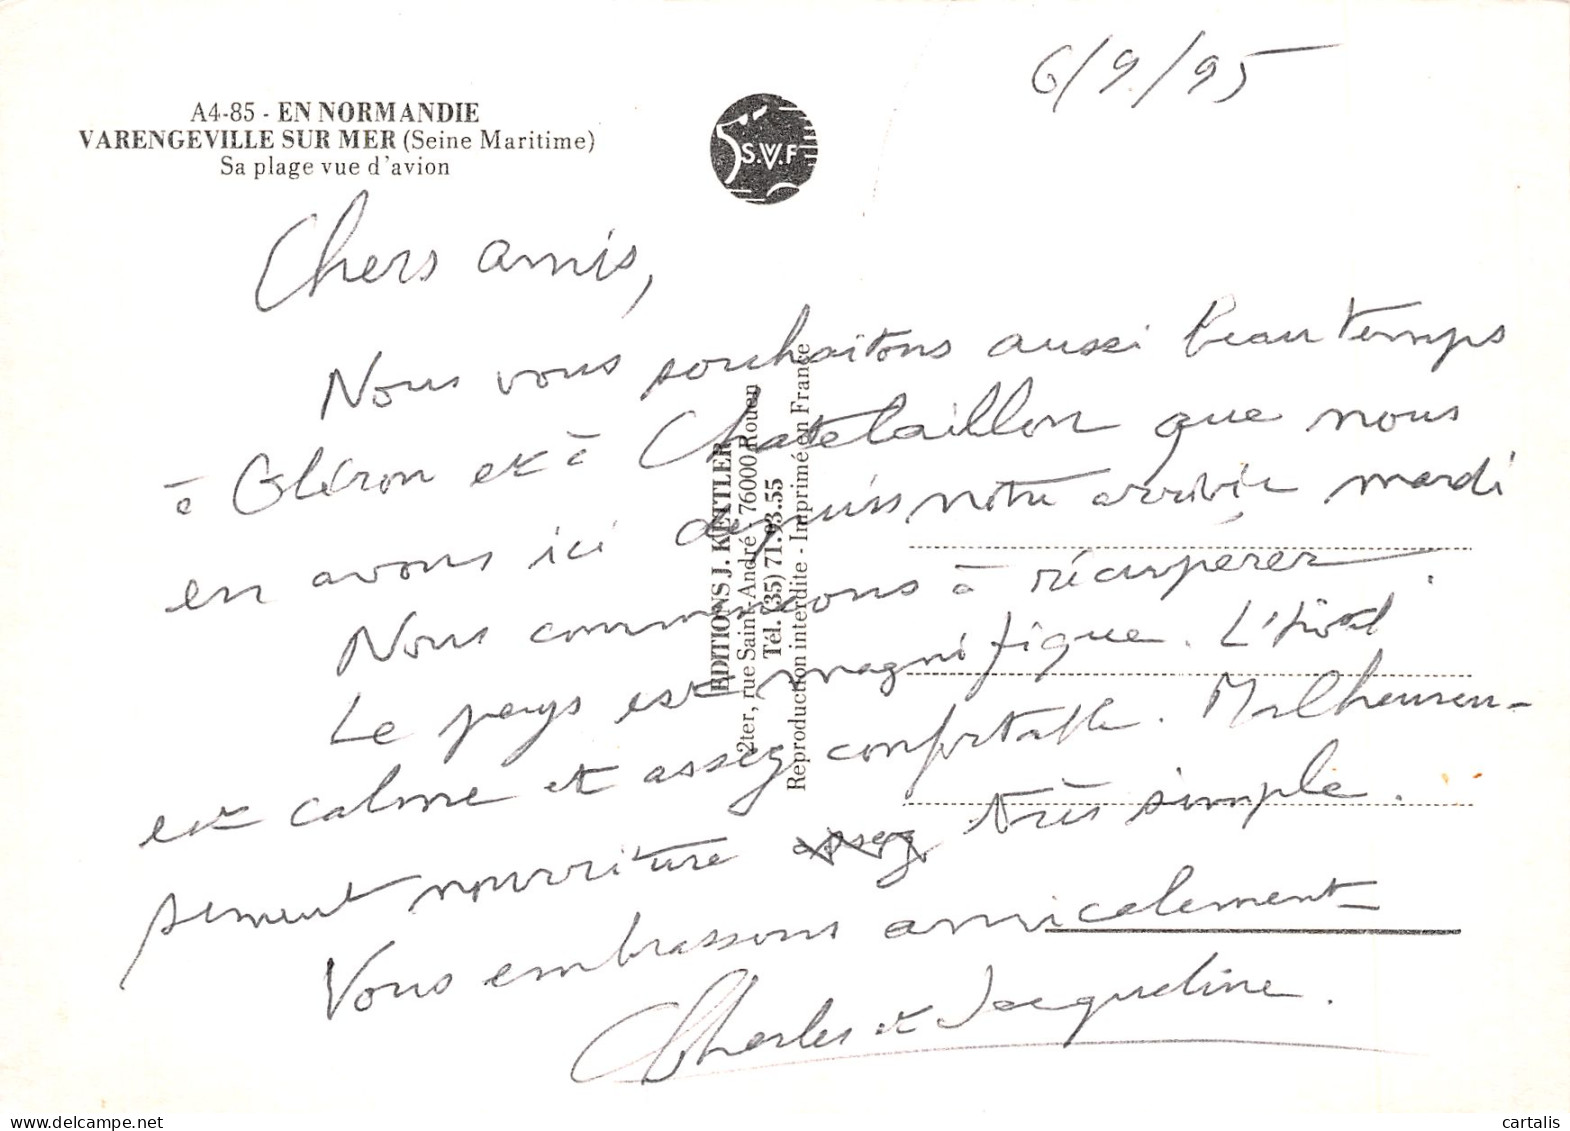 6/9/95
A4-85 - EN NORMANDIE
VARENGEVILLE SUR MER (Seine Maritime)
Sa plage vue d'avion
S.V.F
Chers amis,
Nous vous souhaitons aussi beau temps
à Oléron et à Chatelaillon que nous
en avons ici depuis notre arrivée mardi
Nous commençons à récupérer.
Le pays est magnifique. L'hôtel
est calme et assez confortable. Malheureu-
sement nourriture assez très simple.
Vous embrassons amicalement
Charles et Jacqueline.
EDITIONS J. KETTLER
2ter, rue Saint-André 76000 Rouen
Tél. (35) 71.93.55
Reproduction interdite - Imprimé en France
cartalis